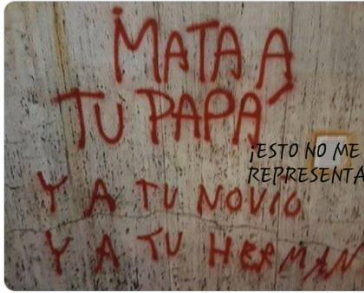 ¡MATA A
TU PAPÁ
¡ESTO NO ME
REPRESENTA
Y A TU NOVIO
Y A TU HERMAN